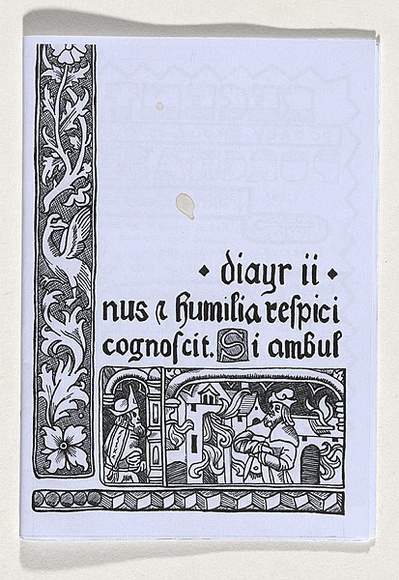 ◆ diayr ii ◆
nus ⁊ humilia reſpici
cognoſcit. Si ambul